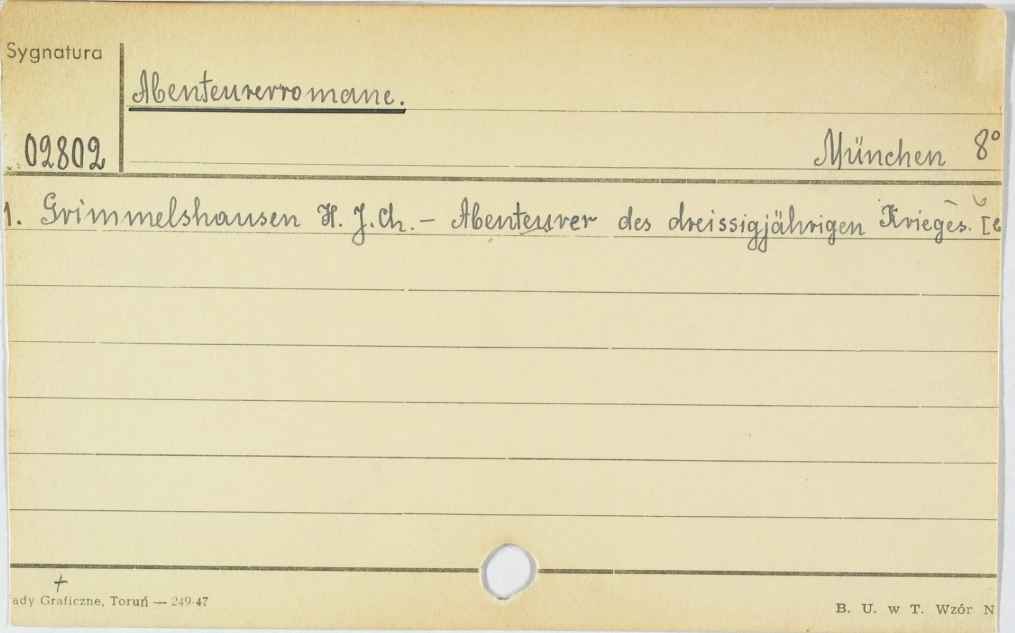 Sygnatura
Abenteurerromane.
02802
München 8°
1. Grimmelshausen H. J. Ch. – Abenteurer des dreissigjährigen Krieges.
ady Graficzne, Toruń — 249-47
B. U. w T. Wzór N